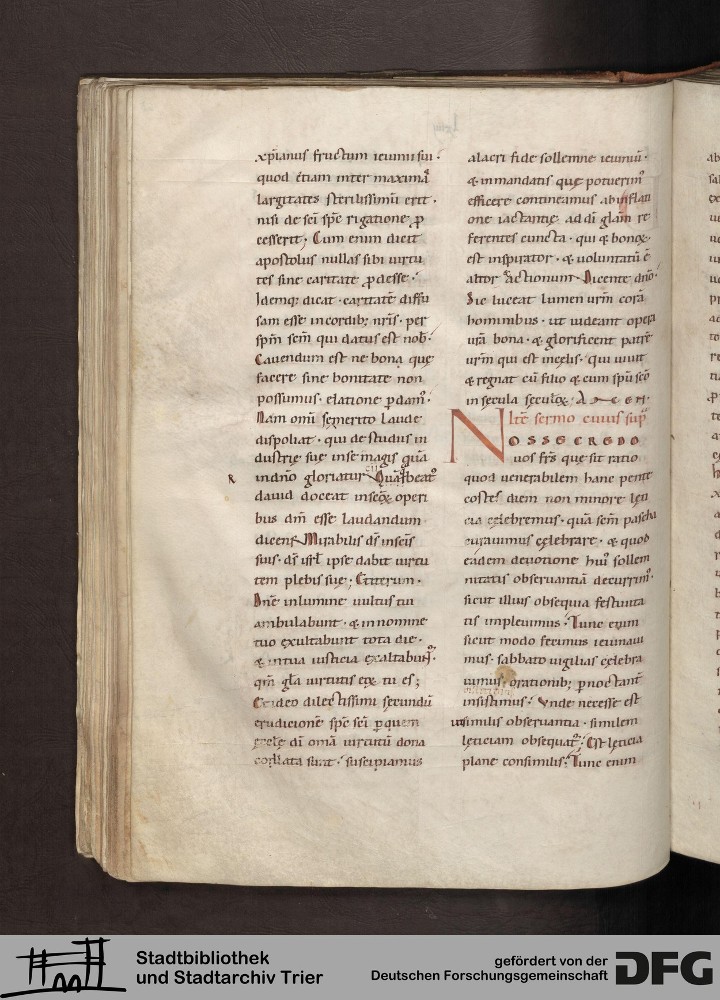 xp̄ianus fructum ieiunii sui·
quod etiam inter maximā
largitates sterilissimū erit·
nisi de sc̄i sp̄c rigatione ꝓ
cesserit; Cum enim dicit
apostolus nullas sibi uirtu
tes sine caritate ꝓdesse·
Idemq; dicat· caritatē diffu
sam esse in cordib; nr̄is· per
sp̄m sc̄m qui datus est nob̄·
Cauendum est ne bona que
facere sine bonitate non
possumus· elatione ꝑdam᷒·
Nam omni semerito laude
dispoliat· qui de studiis in
dustrię suę in se magis quā
R in dn̄o gloriatur·
dauid doceat in seq̄ꝝ operi
bus dm̄ esse laudandum
dicens· Mirabilis ds̄ in sc̄is
suis· ds̄ isrl̄ ipse dabit uirtu
tem plebis suę; Et iterum·
Dn̄e in lumine uultus tui
ambulabunt· & in nomine
tuo exultabunt tota die·
& in tua iusticia exaltabunt᷒·
qm̄ gl̄a uirtutis eꝝ tu es;
Et ideo dilectissimi secundū
erudicionē sp̄c sc̄i ꝑ quem
ęcclę dī om̄a uirtutū dona
collata sunt· suscipiamus
alacri fide sollemne ieiuniū·
& in mandatis quę potuerim᷒
efficere contineamus ab inflati
one iactantię· ad dī gl̄am re
ferentes cuncta· qui & bonoꝝ
est inspirator· & uoluntatū &
altor actionum· Dicente dn̄o·
Sic luceat lumen ur̄m corā
hominibus· ut uideant opera
ur̄a bona· & glorificent patrē
ur̄m qui est in cęlis· qui uiuit
& regnat cū filio & cum sp̄u sc̄o
in secula seculoꝝ· AMEN·
sermo cuius sup̄
NOSSE CREDO
uos fr̄s que sit ratio
quod uenerabilem hanc pente
costes diem non minore lęti
cia cęlebremus· quā sc̄m pascha
curauimus cęlebrare· & quod
eadem deuotione hui᷒ sollem
nitatis obseruantiā decurrim᷒·
sicut illius obsequia festiuita
tis impleuimus· Tunc enim
sicut modo fecimus ieiunaui
mus· sabbato uigilias cęlebra
uimus· orationib; pnoctantes
insistimus· Vnde necesse est
ut similis obseruantia· similem
lęticiam obsequat᷒· Est lęticia
plane consimilis· Tunc enim
Stadtbibliothek
und Stadtarchiv Trier
gefördert von der
Deutschen Forschungsgemeinschaft
DFG